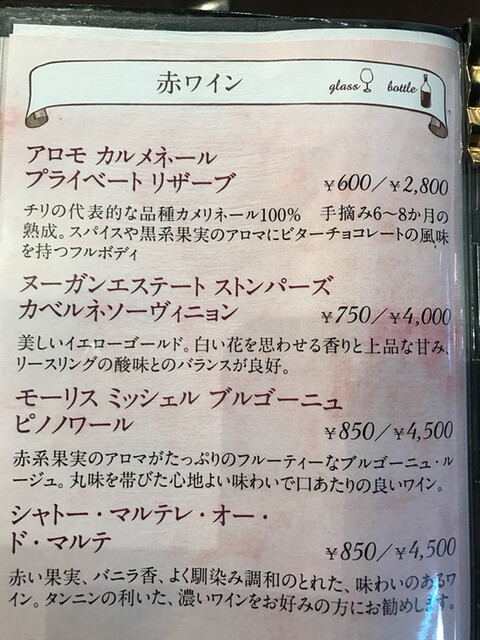 赤ワイン glass bottle
アロモ カルメネール
プライベート リザーブ ¥600/¥2,800
チリの代表的な品種カメリネール100% 手摘み6〜8か月の
熟成。スパイスや黒系果実のアロマにビターチョコレートの風味
を持つフルボディ
ヌーガンエステート ストンパーズ
カベルネソーヴィニョン ¥750/¥4,000
美しいイエローゴールド。白い花を思わせる香りと上品な甘み、
リースリングの酸味とのバランスが良好。
モーリス ミッシェル ブルゴーニュ
ピノノワール ¥850/¥4,500
赤系果実のアロマがたっぷりのフルーティーなブルゴーニュ・ル
ージュ。丸味を帯びた心地よい味わいで口あたりの良いワイン。
シャトー・マルテレ・オー・
ド・マルテ ¥850/¥4,500
赤い果実、バニラ香、よく馴染み調和のとれた、味わいのあるワ
イン。タンニンの利いた、濃いワインをお好みの方にお勧めします。